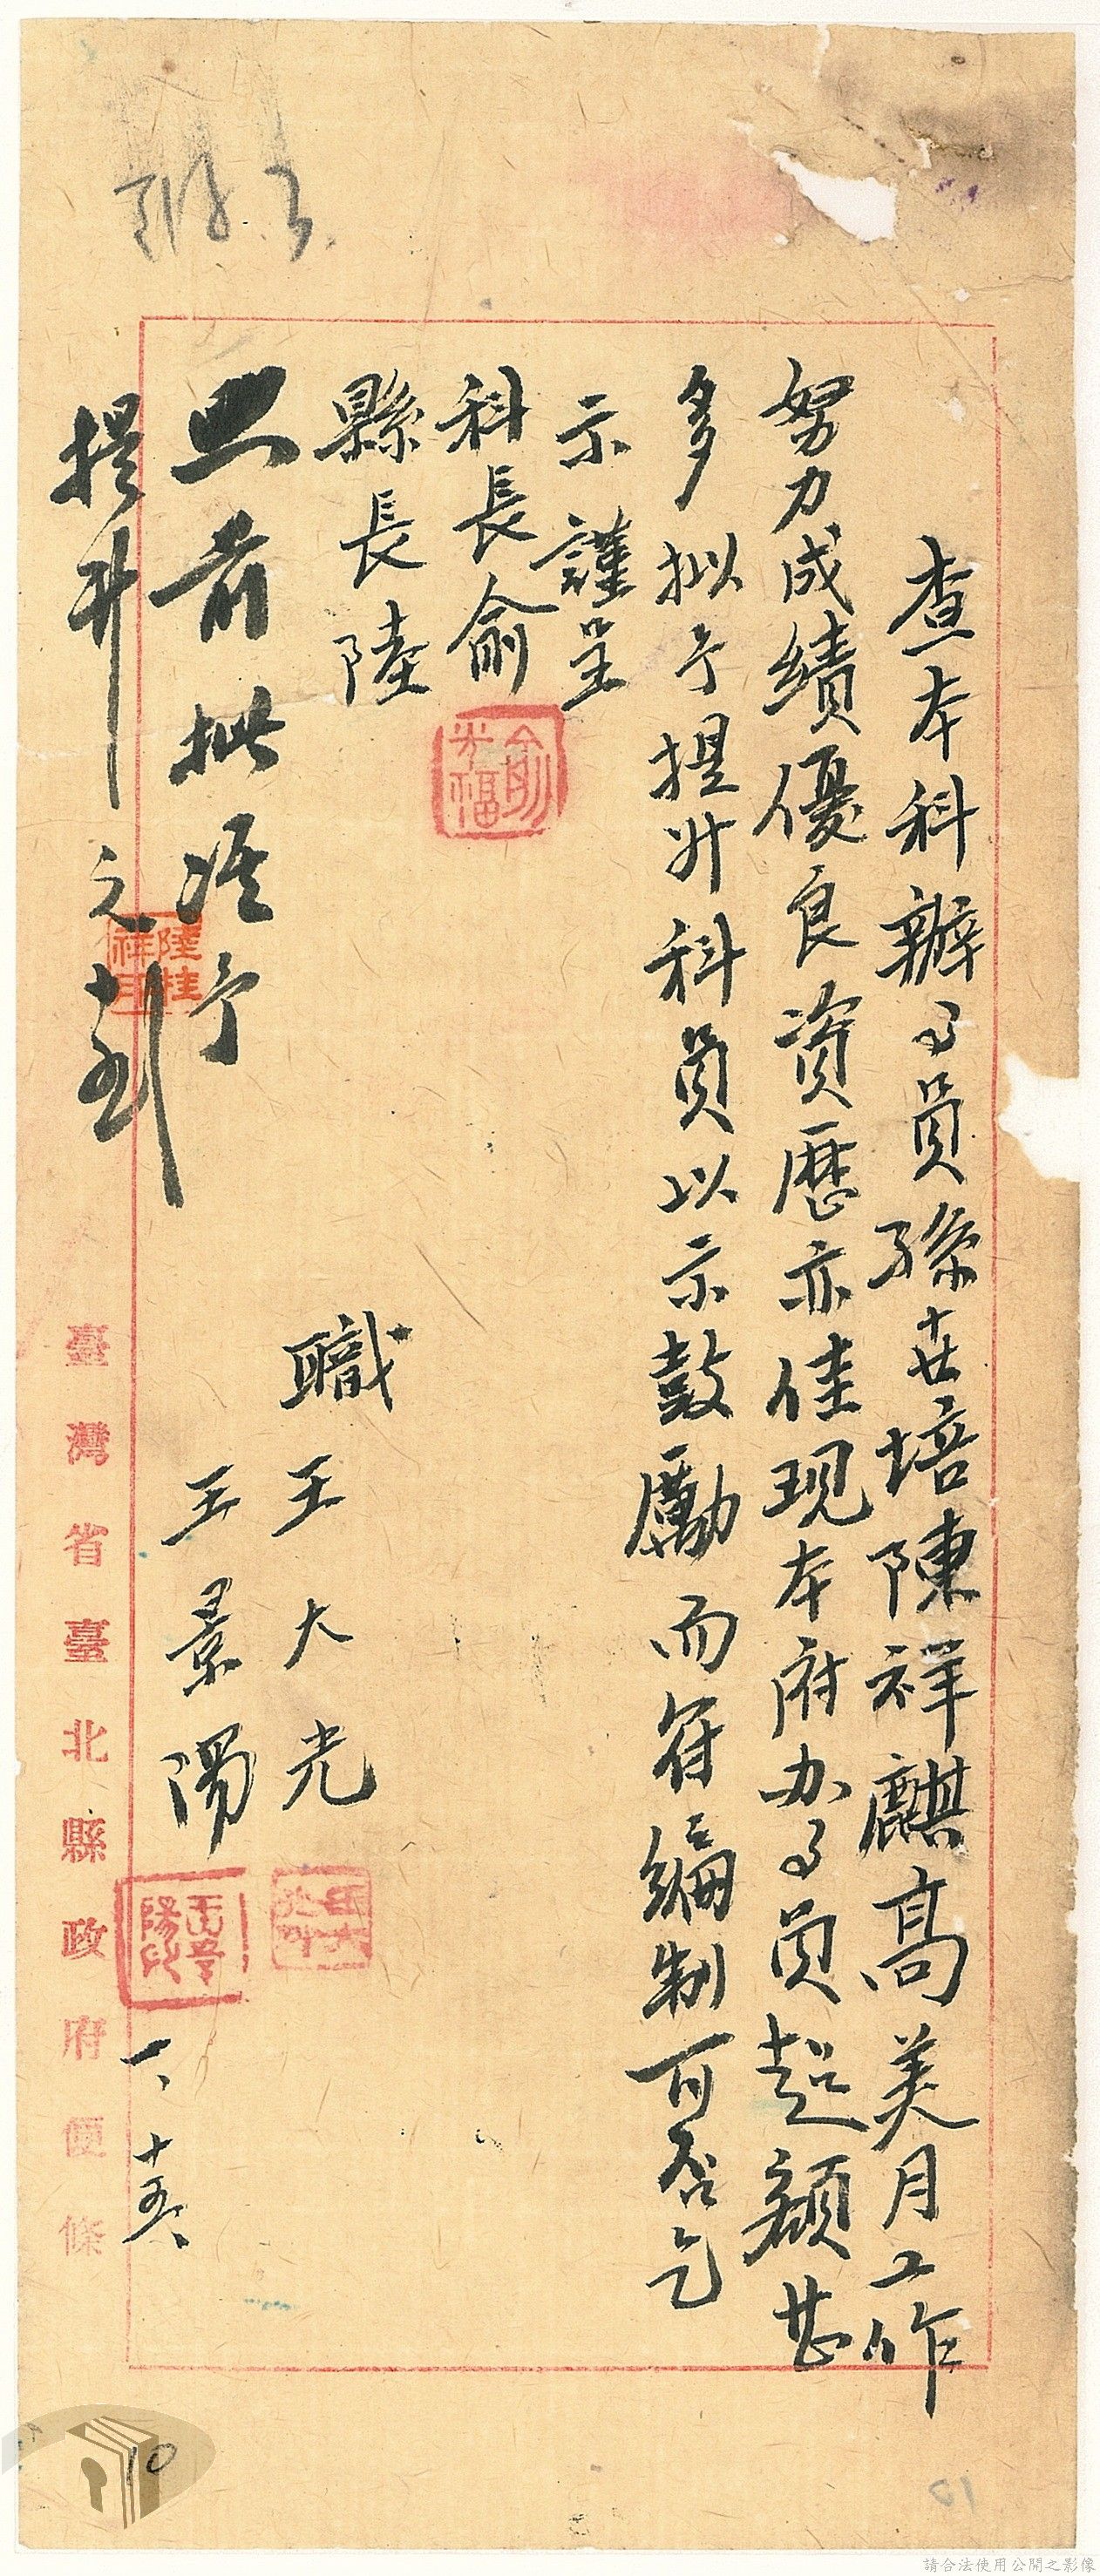 查本科辦事員孫世培陳祥麒高美月工作
努力成績優良資歷亦佳現本府办事員超額甚
多拟予提升科員以示鼓勵而符編制可否乞
示謹呈
科長俞
俞光福
縣長陸
職王大光
王景陽
王景陽印
一、十五、
照前批准予
提升之
陸桂祥印
臺灣省臺北縣政府便條
10
10
請合法使用公開之影像